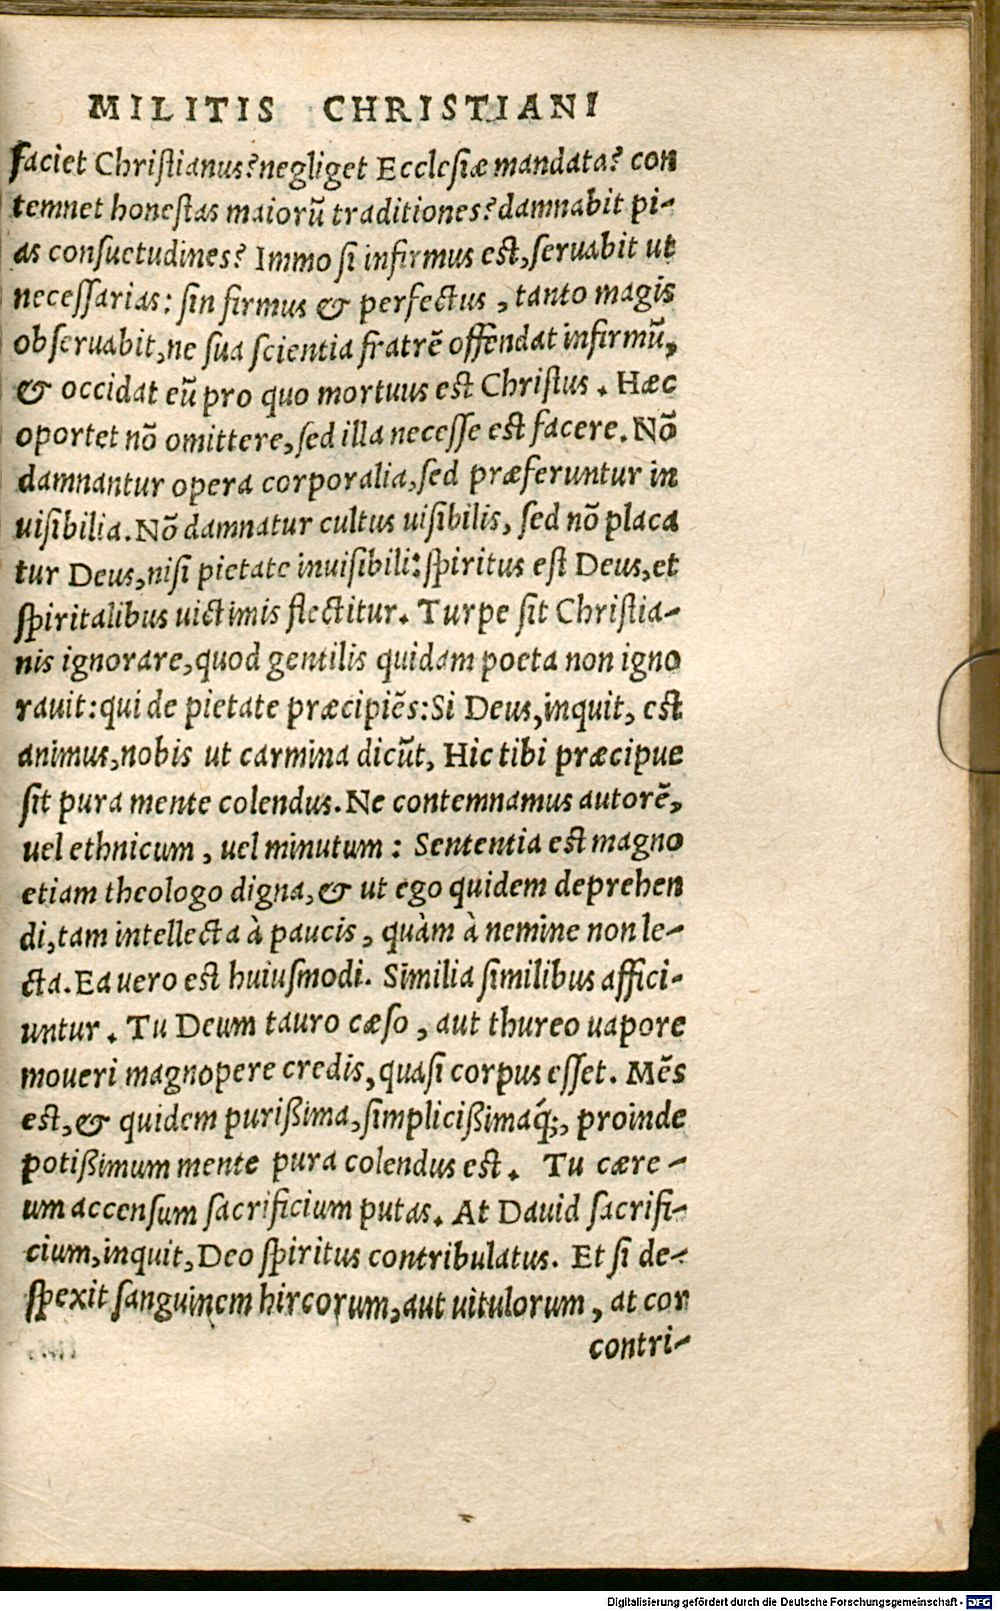 MILITIS CHRISTIANI
faciet Christianus? negliget Ecclesiæ mandata? con
temnet honestas maiorū traditiones? damnabit pi-
as consuetudines? Immo si infirmus est, seruabit ut
necessarias: sin firmus & perfectus, tanto magis
obseruabit, ne sua scientia fratrē offendat infirmū,
& occidat eū pro quo mortuus est Christus. Hæc
oportet nō omittere, sed illa necesse est facere. Nō
damnantur opera corporalia, sed præferuntur in
uisibilia. Nō damnatur cultus uisibilis, sed nō placa
tur Deus, nisi pietate inuisibili: spiritus est Deus, et
spiritalibus uictimis flectitur. Turpe sit Christia-
nis ignorare, quod gentilis quidam poeta non igno
rauit: qui de pietate præcipiēs: Si Deus, inquit, est
animus, nobis ut carmina dicūt, Hic tibi præcipue
sit pura mente colendus. Ne contemnamus autorē,
uel ethnicum, uel minutum: Sententia est magno
etiam theologo digna, & ut ego quidem deprehen
di, tam intellecta à paucis, quàm à nemine non le-
cta. Ea uero est huiusmodi. Similia similibus affici-
untur. Tu Deum tauro cæso, aut thureo uapore
moueri magnopere credis, quasi corpus esset. Mēs
est, & quidem purißima, simplicißimaq́;, proinde
potißimum mente pura colendus est. Tu cære-
um accensum sacrificium putas. At Dauid sacrifi-
cium, inquit, Deo spiritus contribulatus. Et si de-
spexit sanguinem hircorum, aut uitulorum, at cor
contri-
Digitalisierung gefördert durch die Deutsche Forschungsgemeinschaft - DFG